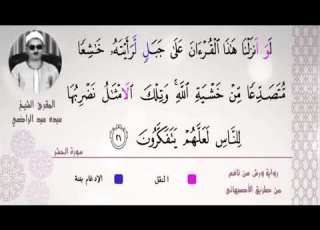 لَوَ اَنزَلْنَا هَٰذَا اَلْقُرْءَانَ عَلَىٰ جَبَلٍ لَّرَأَيْتَهُۥ خَٰشِعًا
مُّتَصَدِّعًا مِّنْ خَشْيَةِ اِ۬للَّهِۖ وَتِلْكَ اَلَامْثَٰلُ نَضْرِبُهَا
لِلنَّاسِ لَعَلَّهُمْ يَتَفَكَّرُونَ ٢١
المقرئ الشيخ
عبده عبد الراضي
سورة الحشر
رواية ورش عن نافع
من طريق الأصبهاني
النقل
الإدغام بغنة